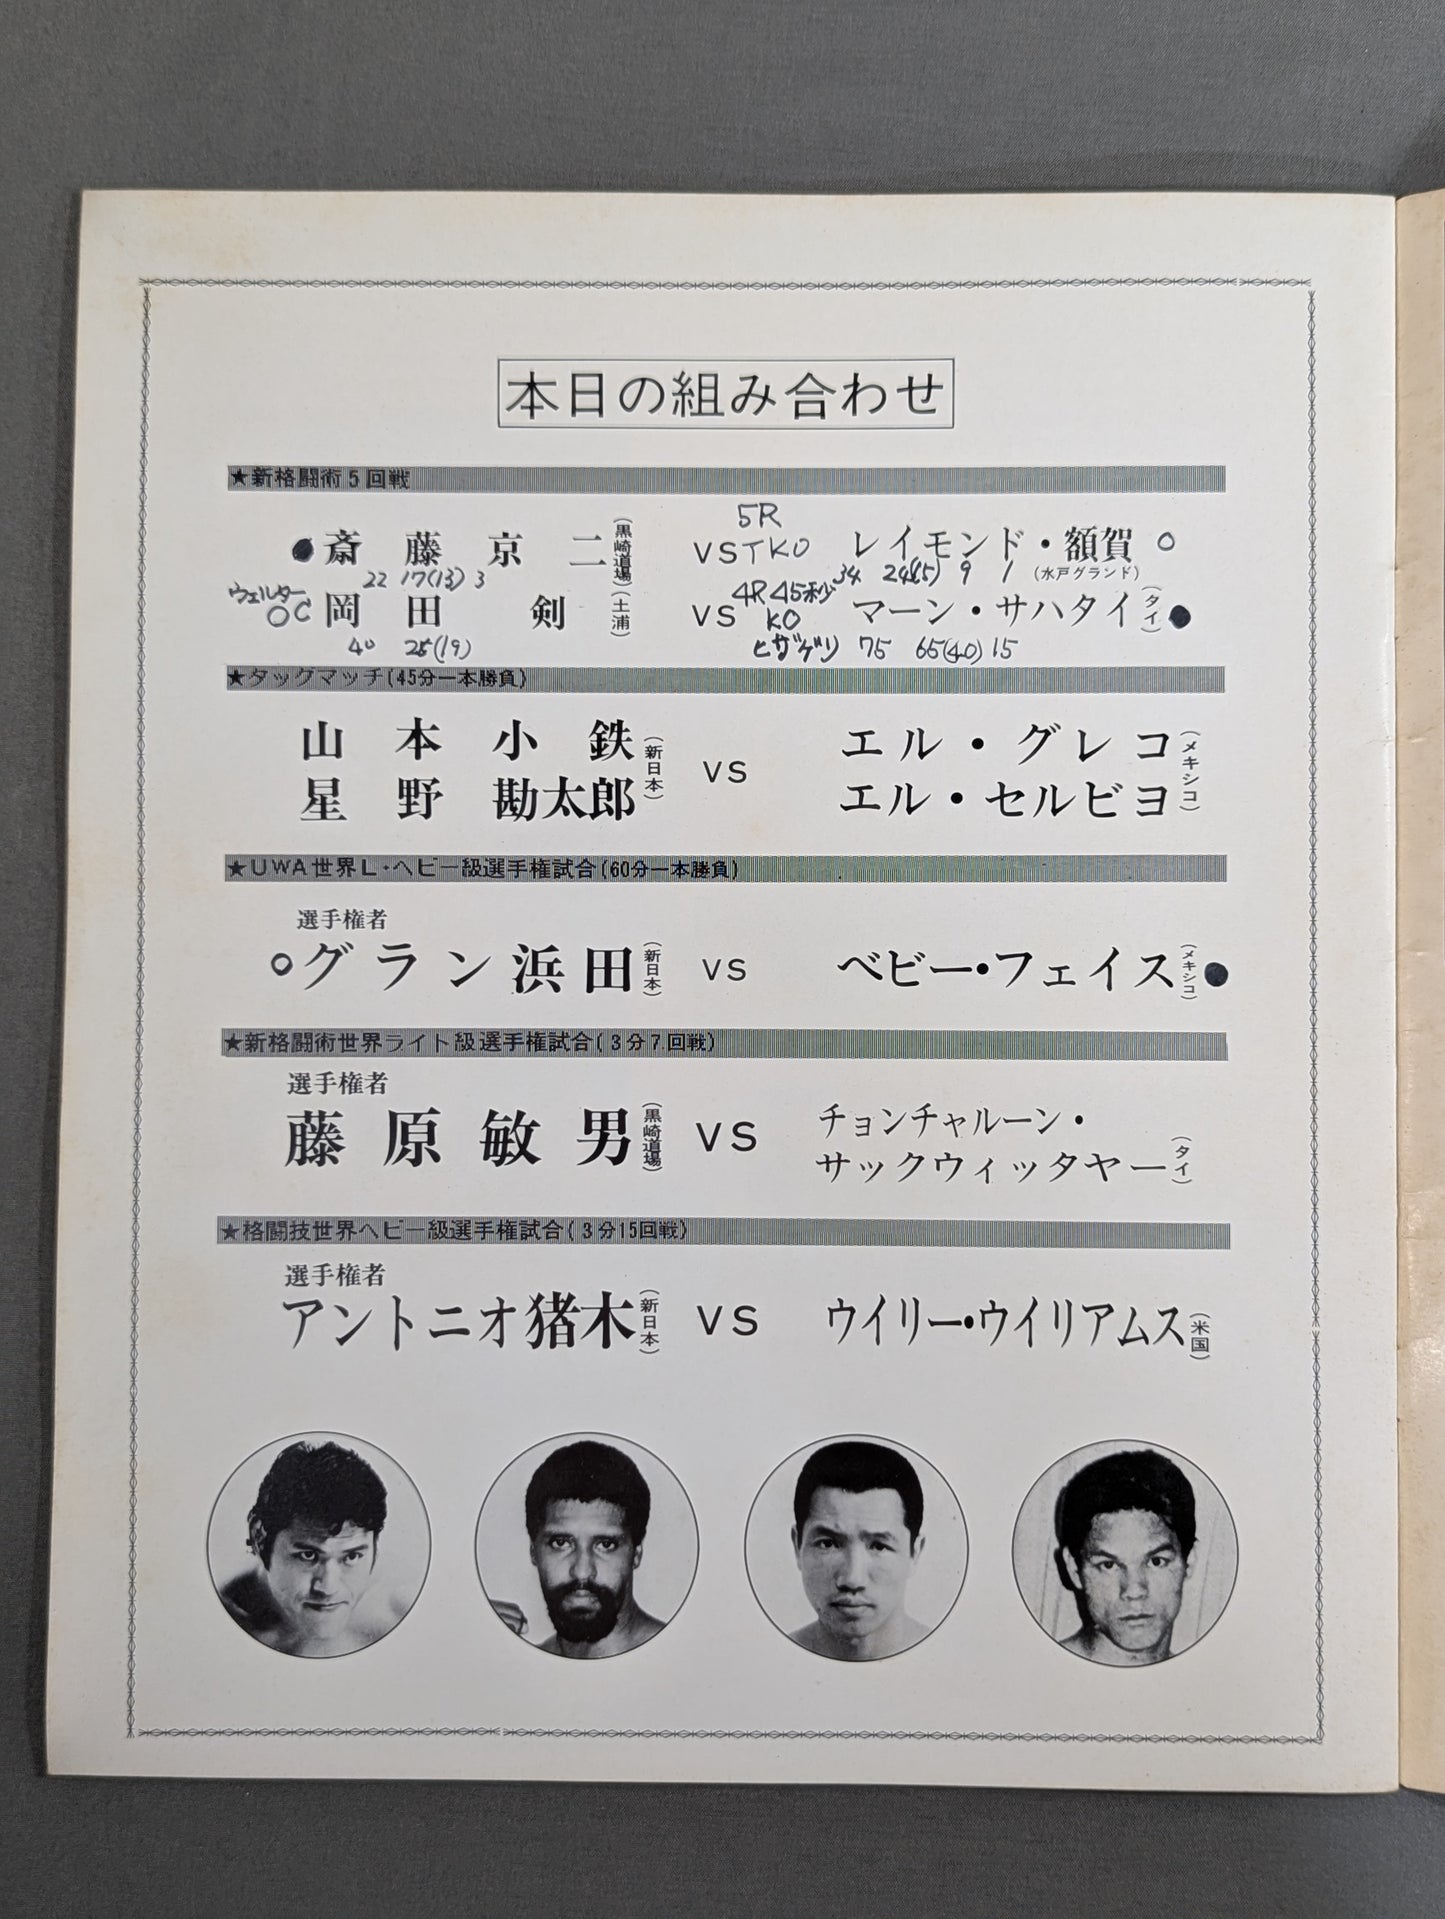 本日の組み合わせ
★新格闘術5回戦
5R
●斎藤京二(黒崎道場) VS TKO レイモンド・額賀○
22 17(13) 3 34 24(15) 9 1 (水戸グランド)
ウェルター 4R 45秒
○C 岡田剣(土浦) VS KO マーン・サハタイ(タイ)●
40 25(19) ヒザゲリ 75 65(40) 15
★タッグマッチ(45分一本勝負)
山本小鉄 エル・グレコ
(新日本) VS (メキシコ)
星野勘太郎 エル・セルビヨ
★UWA世界L・ヘビー級選手権試合(60分一本勝負)
選手権者
○グラン浜田(新日本) VS ベビー・フェイス(メキシコ)●
★新格闘術世界ライト級選手権試合(3分7回戦)
選手権者
藤原敏男(黒崎道場) VS チョンチャルーン・
サックウィッタヤー(タイ)
★格闘技世界ヘビー級選手権試合(3分15回戦)
選手権者
アントニオ猪木(新日本) VS ウイリー・ウイリアムス(米国)